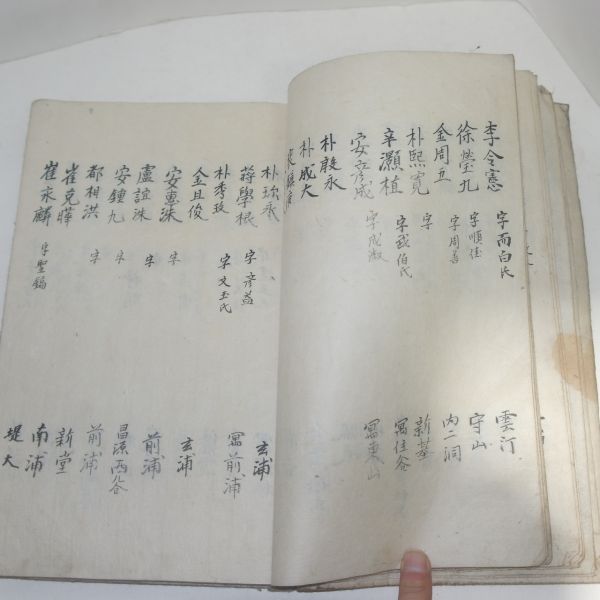 李令憲 字而白氏 雲汀
徐瑩九 字順佳 守山
金周五 字周善 內二洞
朴熙寬 字 新基
辛灝植 字武伯氏 寓佳谷
安彦成 字成淑 寓東山
朴殷永
朴成大
朴 永 玄浦
蔣學根 字彦益 寓前浦
朴秀玟 字文玉氏
金且俊 玄浦
安惠洙 字 前浦
盧誼洙 字
安鍾九 字 昌源西谷
都相洪 字 前浦
崔克曄 新堂
崔永麟 字聖鎬 南浦
堤大